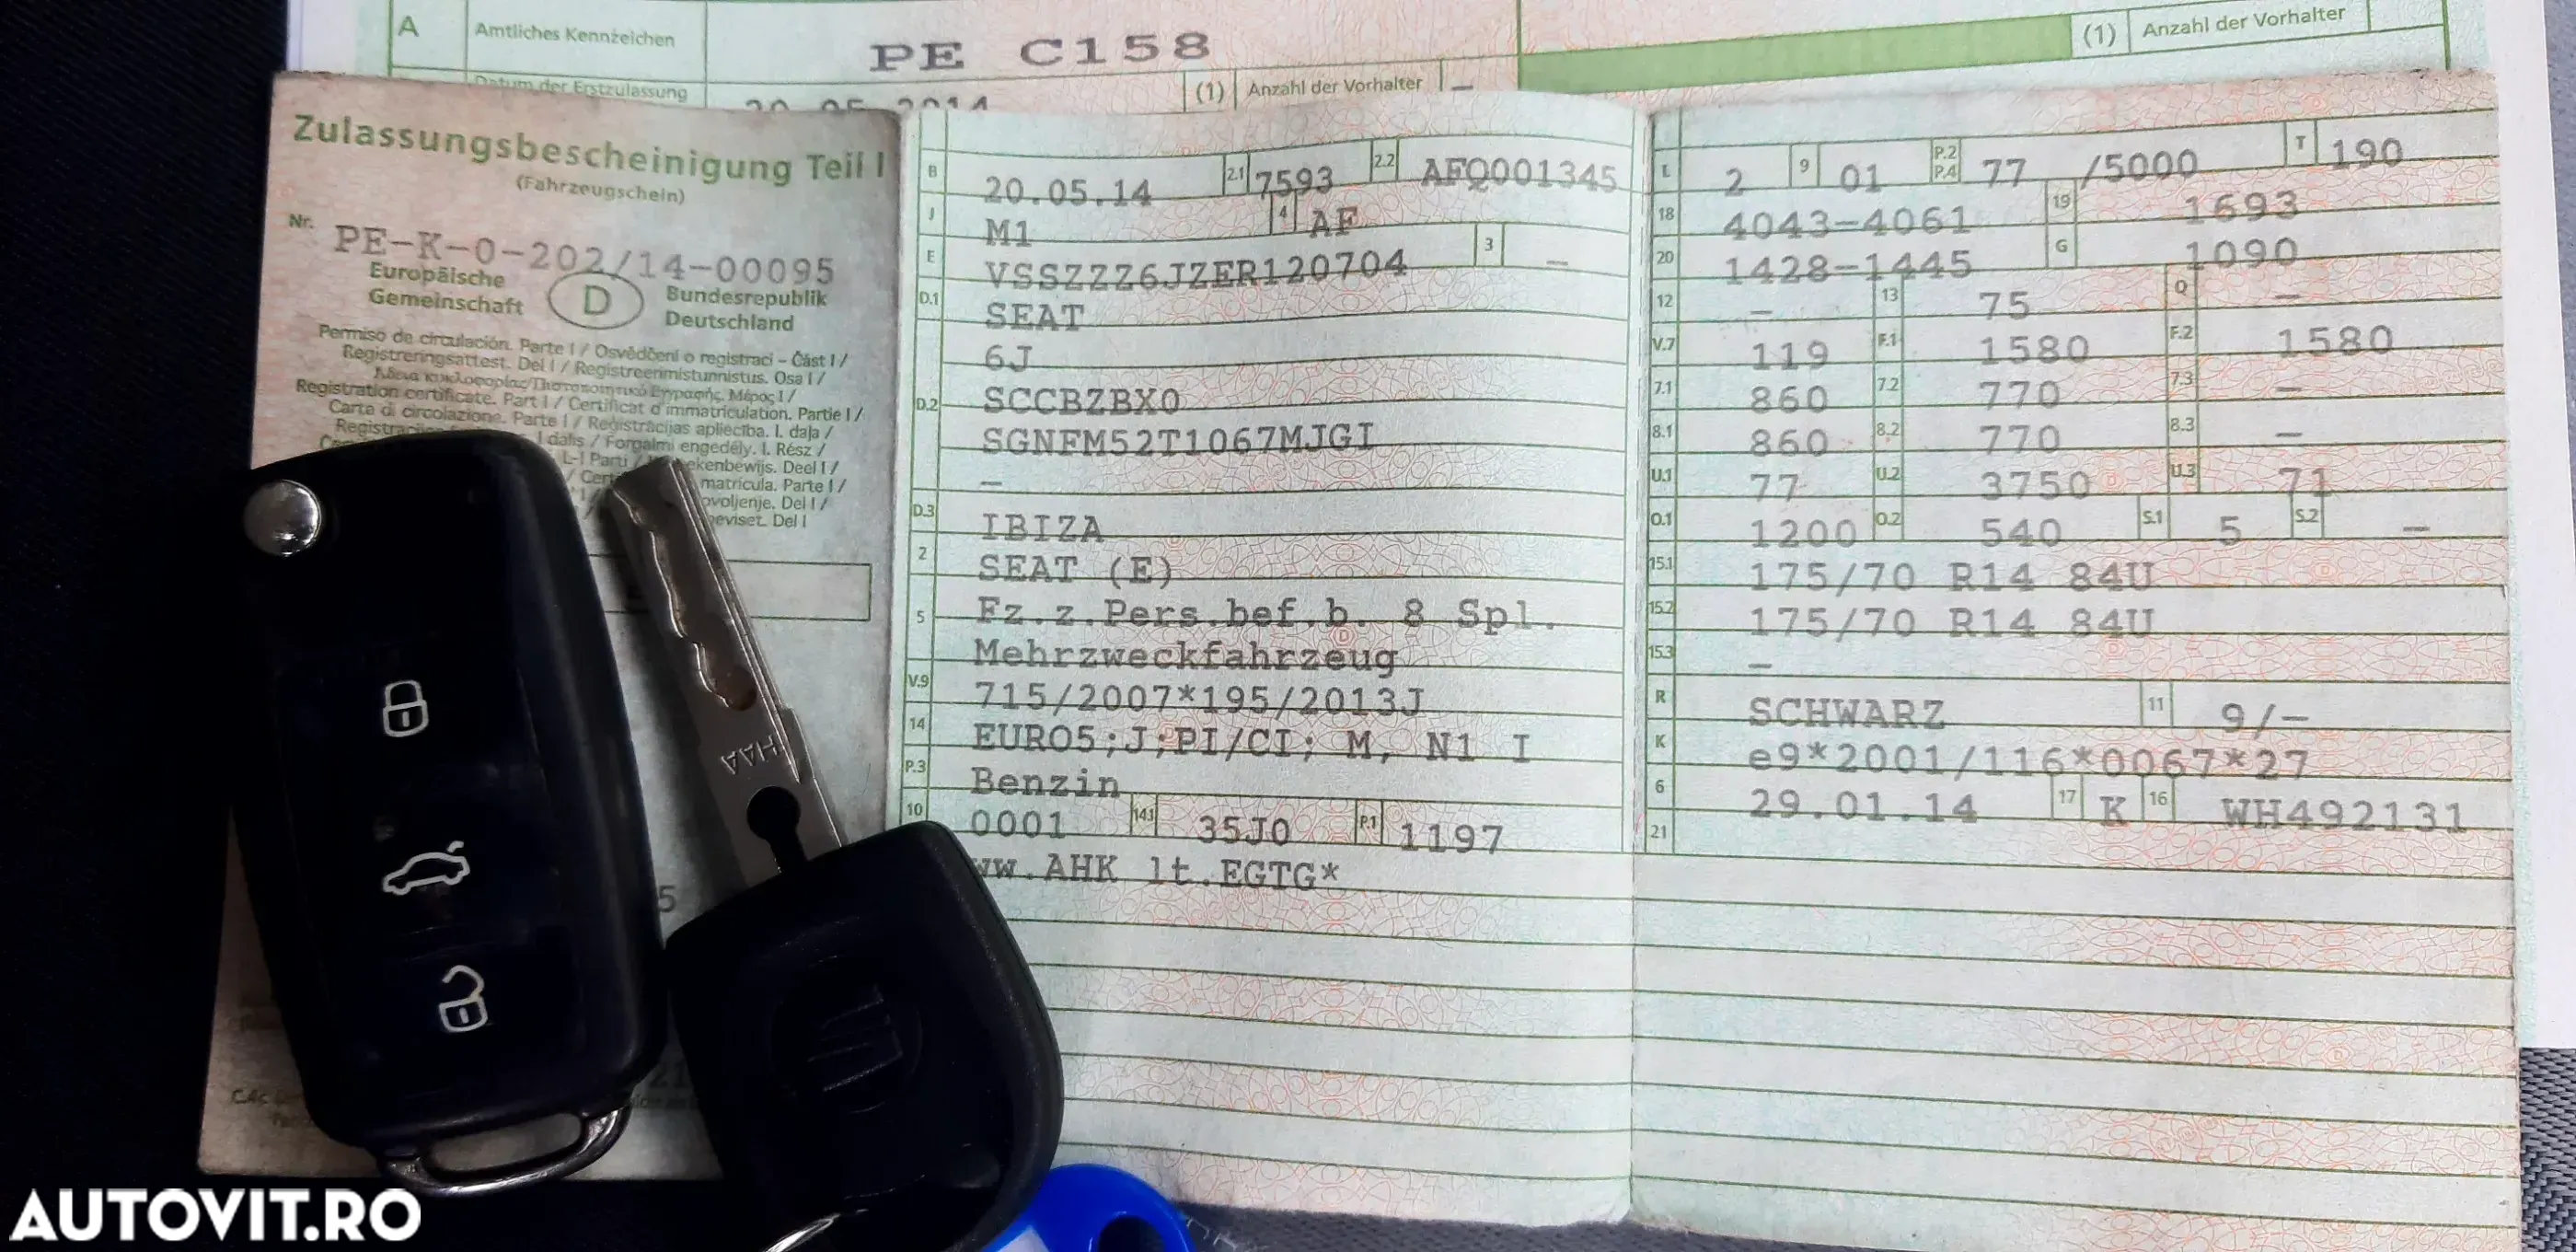 A Amtliches Kennzeichen PE C158 (1) Anzahl der Vorhalter
Datum der Erstzulassung 20 05 2014 (1) Anzahl der Vorhalter –
Zulassungsbescheinigung Teil I
(Fahrzeugschein)
Nr. PE-K-0-202/14-00095
Europäische Gemeinschaft D Bundesrepublik Deutschland
Permiso de circulación. Parte I / Osvědčení o registraci – Část I /
Registreringsattest. Del I / Registreerimistunnistus. Osa I /
Άδεια κυκλοφορίας/Πιστοποιητικό Εγγραφής. Μέρος I /
Registration certificate. Part I / Certificat d'immatriculation. Partie I /
Carta di circolazione. Parte I / Reģistrācijas apliecība. I. daļa /
I dalis / Forgalmi engedély. I. Rész /
ekenbewijs. Deel I /
matrícula. Parte I /
ovoljenje. Del I /
beviset. Del I
B 20.05.14 2.1 7593 2.2 AFQ001345
J M1 4 AF
E VSSZZZ6JZER120704 3 –
D.1 SEAT
6J
D.2 SCCBZBX0
SGNFM52T1067MJGI
–
D.3 IBIZA
2 SEAT (E)
5 Fz.z.Pers.bef.b. 8 Spl.
Mehrzweckfahrzeug
V.9 715/2007*195/2013J
14 EURO5;J;PI/CI; M, N1 I
P.3 Benzin
10 0001 14.1 35J0 P.1 1197
ww.AHK lt.EGTG*
L 2 9 01 P.2 P.4 77 /5000 T 190
18 4043-4061 19 1693
20 1428-1445 G 1090
12 – 13 75 Q –
V.7 119 F.1 1580 F.2 1580
7.1 860 7.2 770 7.3 –
8.1 860 8.2 770 8.3 –
U.1 77 U.2 3750 U.3 71
O.1 1200 O.2 540 S.1 5 S.2 –
15.1 175/70 R14 84U
15.2 175/70 R14 84U
15.3 –
R SCHWARZ 11 9/–
K e9*2001/116*0067*27
6 29.01.14 17 K 16 WH492131
21
HAA
AUTOVIT.RO